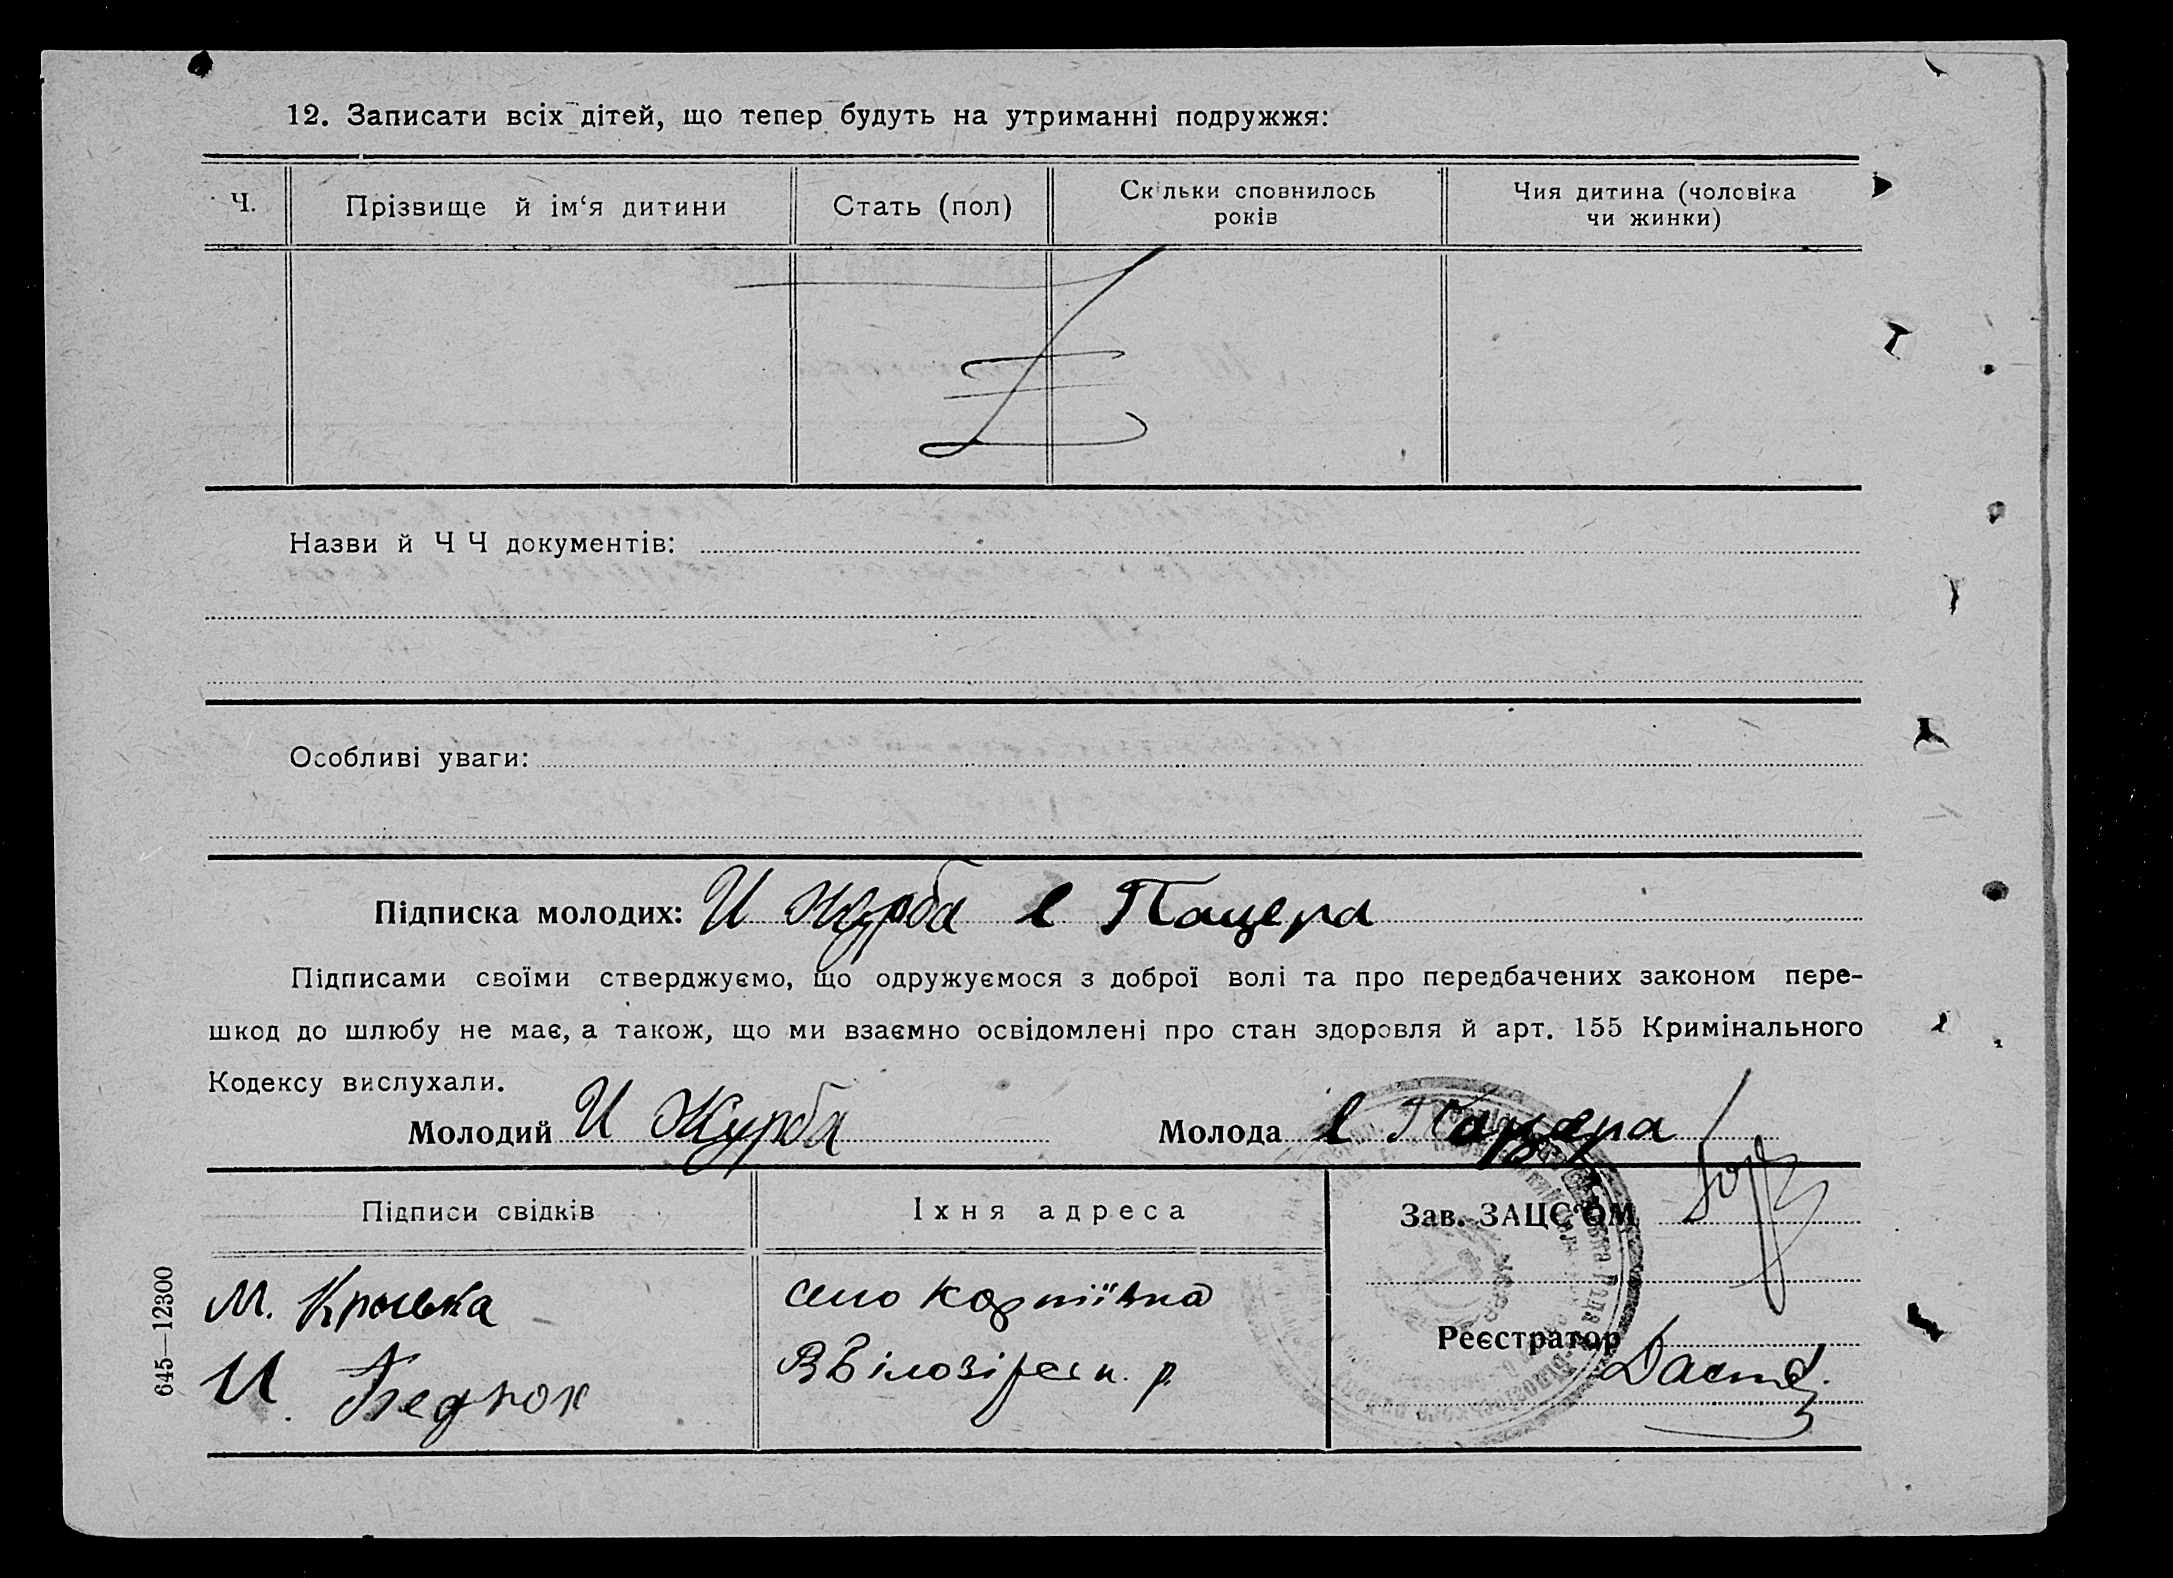 12. Записати всіх дітей, що тепер будуть на утриманні подружжя:
Ч.
Прізвище й ім‘я дитини
Стать (пол)
Скільки сповнилось
років
Чия дитина (чоловіка
чи жинки)
Назви й Ч Ч документів:
Особливі уваги:
Підписка молодих: И Журба Е Пацера
Підписами своїми стверджуємо, що одружуємося з доброї волі та про передбачених законом пере-
шкод до шлюбу не має, а також, що ми взаємно освідомлені про стан здоровля й арт. 155 Кримінального
Кодексу вислухали.
Молодий И Журба
Молода Е Пацера
Підписи свідків
Іхня адреса
Зав. ЗАЦС‘ОМ
М.
село
И.
В Білозірськ. р.
Реєстратор
645—12300